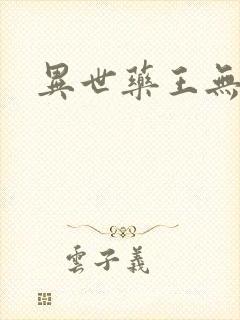 異世藥王無
雲子義